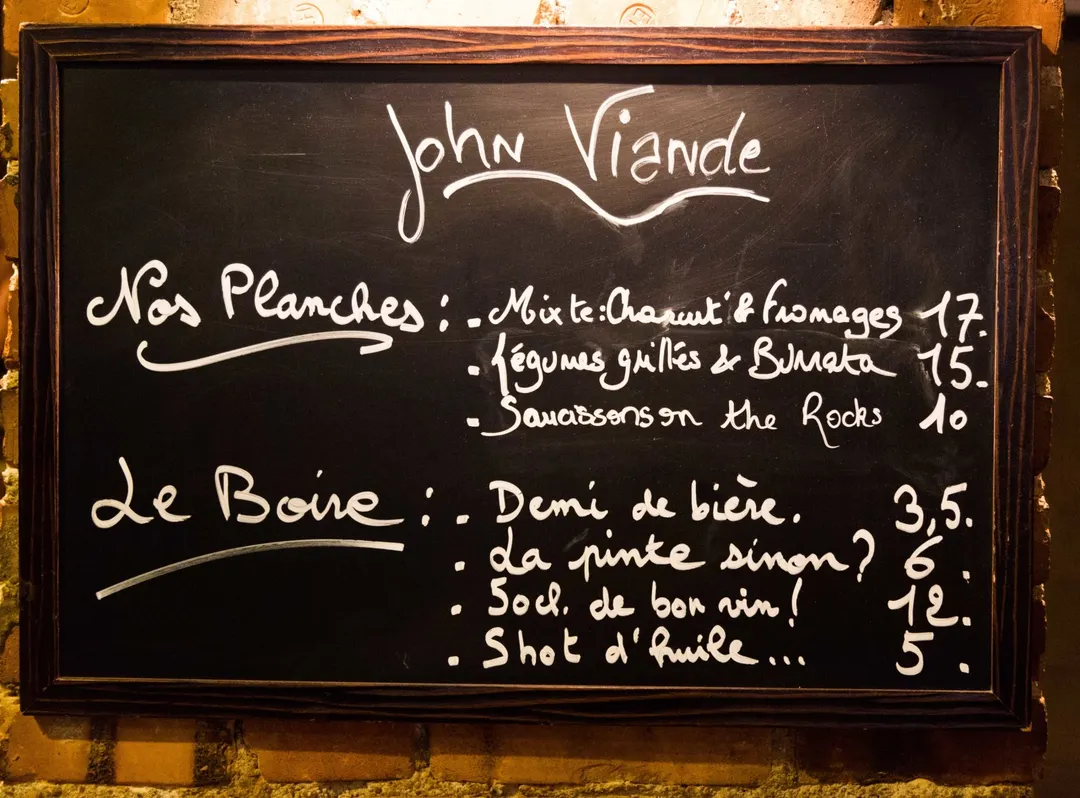 John Viande
Nos Planches : . Mixte: Charcut' & Fromages 17.
. Légumes grillés & Burrata 15.
. Saucissons on the Rocks 10
Le Boire : . Demi de bière. 3,5.
. La pinte sinon ? 6.
. 50cl. de bon vin ! 12.
. Shot d'huile... 5.